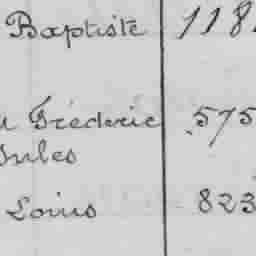 Baptiste 118
Fréderic 575
Jules
Loius 823